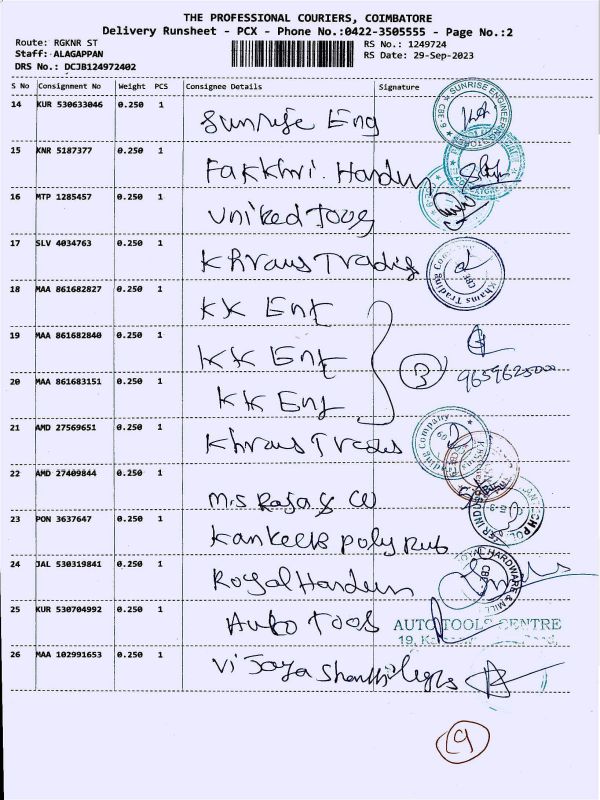 THE PROFESSIONAL COURIERS, COIMBATORE
Delivery Runsheet - PCX - Phone No.:0422-3505555 - Page No.:2
Route: RGKNR ST
Staff: ALAGAPPAN
DRS No.: DCJB124972402
RS No.: 1249724
RS Date: 29-Sep-2023
S No Consignment No Weight PCS Consignee Details Signature
14 KUR 530633046 0.250 1 Sunrise Eng
SUNRISE ENGINEERING
15 KNR 5187377 0.250 1 Fakkhri. Hardun
16 MTP 1285457 0.250 1 United Toos
17 SLV 4034763 0.250 1 Khraus Tradig
Khams Trading
CBE
18 MAA 861682827 0.250 1 KK Ent
19 MAA 861682840 0.250 1 KK Ent
3
20 MAA 861683151 0.250 1 KK Ent
9659625000
21 AMD 27569651 0.250 1 Khraus Trades
Trading Company
22 AMD 27409844 0.250 1 M.S Rajas Co
23 PON 3637647 0.250 1 Kankeeb poly Rub
24 JAL 530319841 0.250 1 Royal Hardun
HARDWARE & MILL
CBE
25 KUR 530704992 0.250 1 Auto Toos
AUTO TOOLS CENTRE
26 MAA 102991653 0.250 1 Vijaya Shanthi